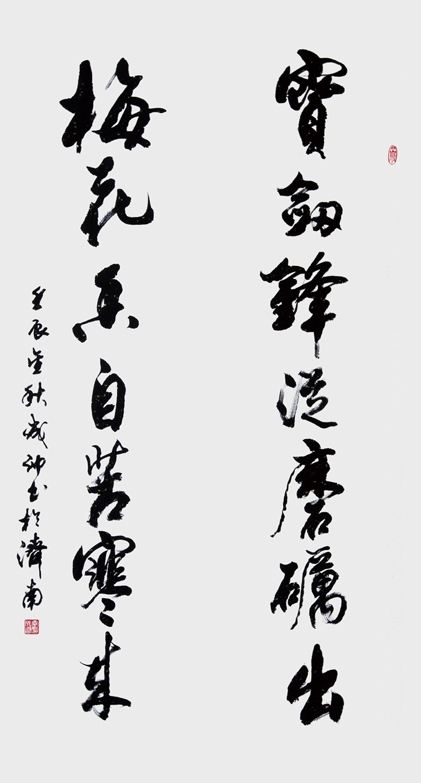 寶劔鋒從磨礪出
梅花香自苦寒来
壬辰金秋成神書於濟南